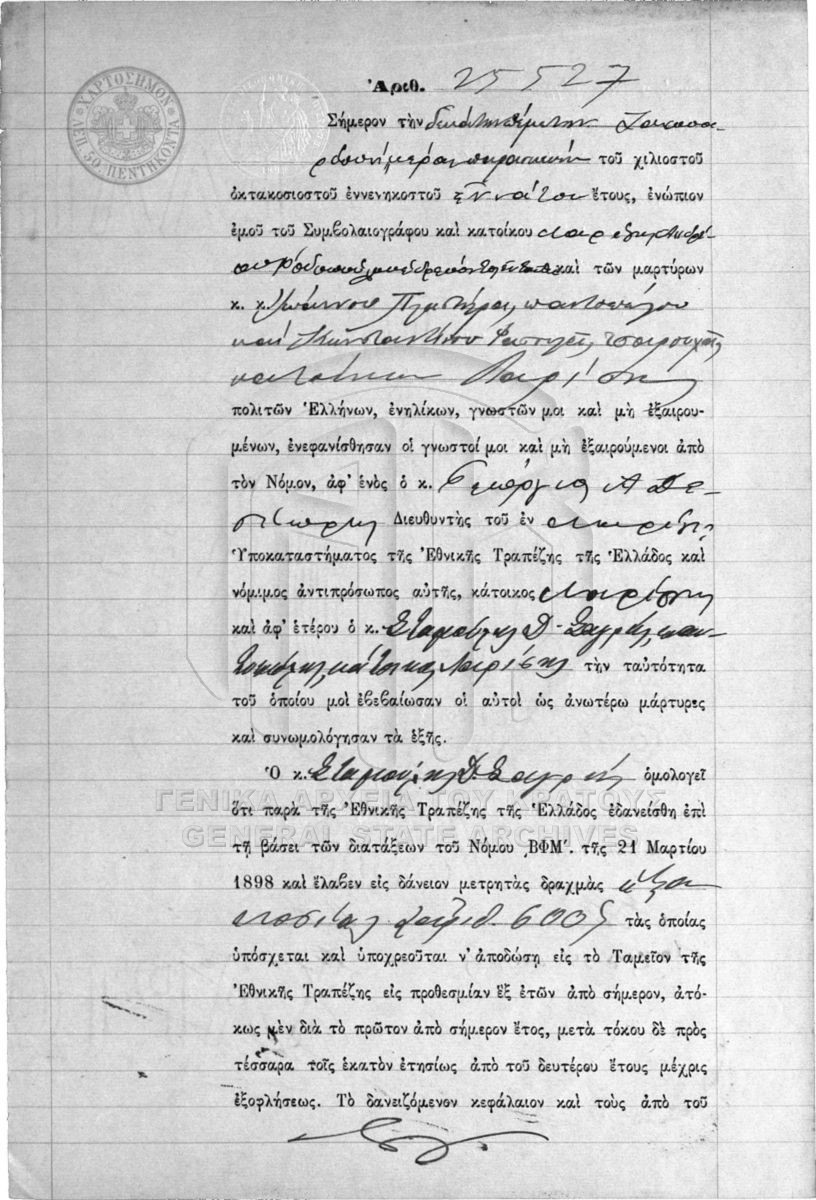 ΧΑΡΤΟΣΗΜΟΝ
ΛΕΠ. 50. ΠΕΝΤΗΚΟΝΤΑ
Ἀριθ. 25527
Σήμερον τὴν δεκάτην πέμπτην Ἰανουα-
ρίου ἡμέραν παρασκευὴν τοῦ χιλιοστοῦ
ὀκτακοσιοστοῦ ἐννενηκοστοῦ ἐννάτου ἔτους, ἐνώπιον
ἐμοῦ τοῦ Συμβολαιογράφου καὶ κατοίκου Λαρίσης
καὶ τῶν μαρτύρων
κ. κ. Ἰωάννου παντοπώλου
καὶ Κωνσταντίνου
κατοίκων Λαρίσης
πολιτῶν Ἑλλήνων, ἐνηλίκων, γνωστῶν μοι καὶ μὴ ἐξαιρου-
μένων, ἐνεφανίσθησαν οἱ γνωστοί μοι καὶ μὴ ἐξαιρούμενοι ἀπὸ
τὸν Νόμον, ἀφ' ἑνὸς ὁ κ. Γεώργιος Α
Διευθυντὴς τοῦ ἐν Λαρίσῃ
Ὑποκαταστήματος τῆς Ἐθνικῆς Τραπέζης τῆς Ἑλλάδος καὶ
νόμιμος ἀντιπρόσωπος αὐτῆς, κάτοικος Λαρίσης
καὶ ἀφ' ἑτέρου ὁ κ. Σταμούλης Δ.
κάτοικος Λαρίσης τὴν ταὐτότητα
τοῦ ὁποίου μοὶ ἐβεβαίωσαν οἱ αὐτοὶ ὡς ἀνωτέρω μάρτυρες
καὶ συνωμολόγησαν τὰ ἑξῆς.
Ὁ κ. Σταμούλης Δ. ὁμολογεῖ
ΓΕΝΙΚΑ ΑΡΧΕΙΑ ΤΟΥ ΚΡΑΤΟΥΣ
ὅτι παρὰ τῆς Ἐθνικῆς Τραπέζης τῆς Ἑλλάδος ἐδανείσθη ἐπὶ
GENERAL STATE ARCHIVES
τῇ βάσει τῶν διατάξεων τοῦ Νόμου ͵ΒΦΜʹ. τῆς 21 Μαρτίου
1898 καὶ ἔλαβεν εἰς δάνειον μετρητὰς δραχμὰς ἑξα-
κοσίας ἀριθ. 600 τὰς ὁποίας
ὑπόσχεται καὶ ὑποχρεοῦται ν' ἀποδώσῃ εἰς τὸ Ταμεῖον τῆς
Ἐθνικῆς Τραπέζης εἰς προθεσμίαν ἓξ ἐτῶν ἀπὸ σήμερον, ἀτό-
κως μὲν διὰ τὸ πρῶτον ἀπὸ σήμερον ἔτος, μετὰ τόκου δὲ πρὸς
τέσσαρα τοῖς ἑκατὸν ἐτησίως ἀπὸ τοῦ δευτέρου ἔτους μέχρις
ἐξοφλήσεως. Τὸ δανειζόμενον κεφάλαιον καὶ τοὺς ἀπὸ τοῦ